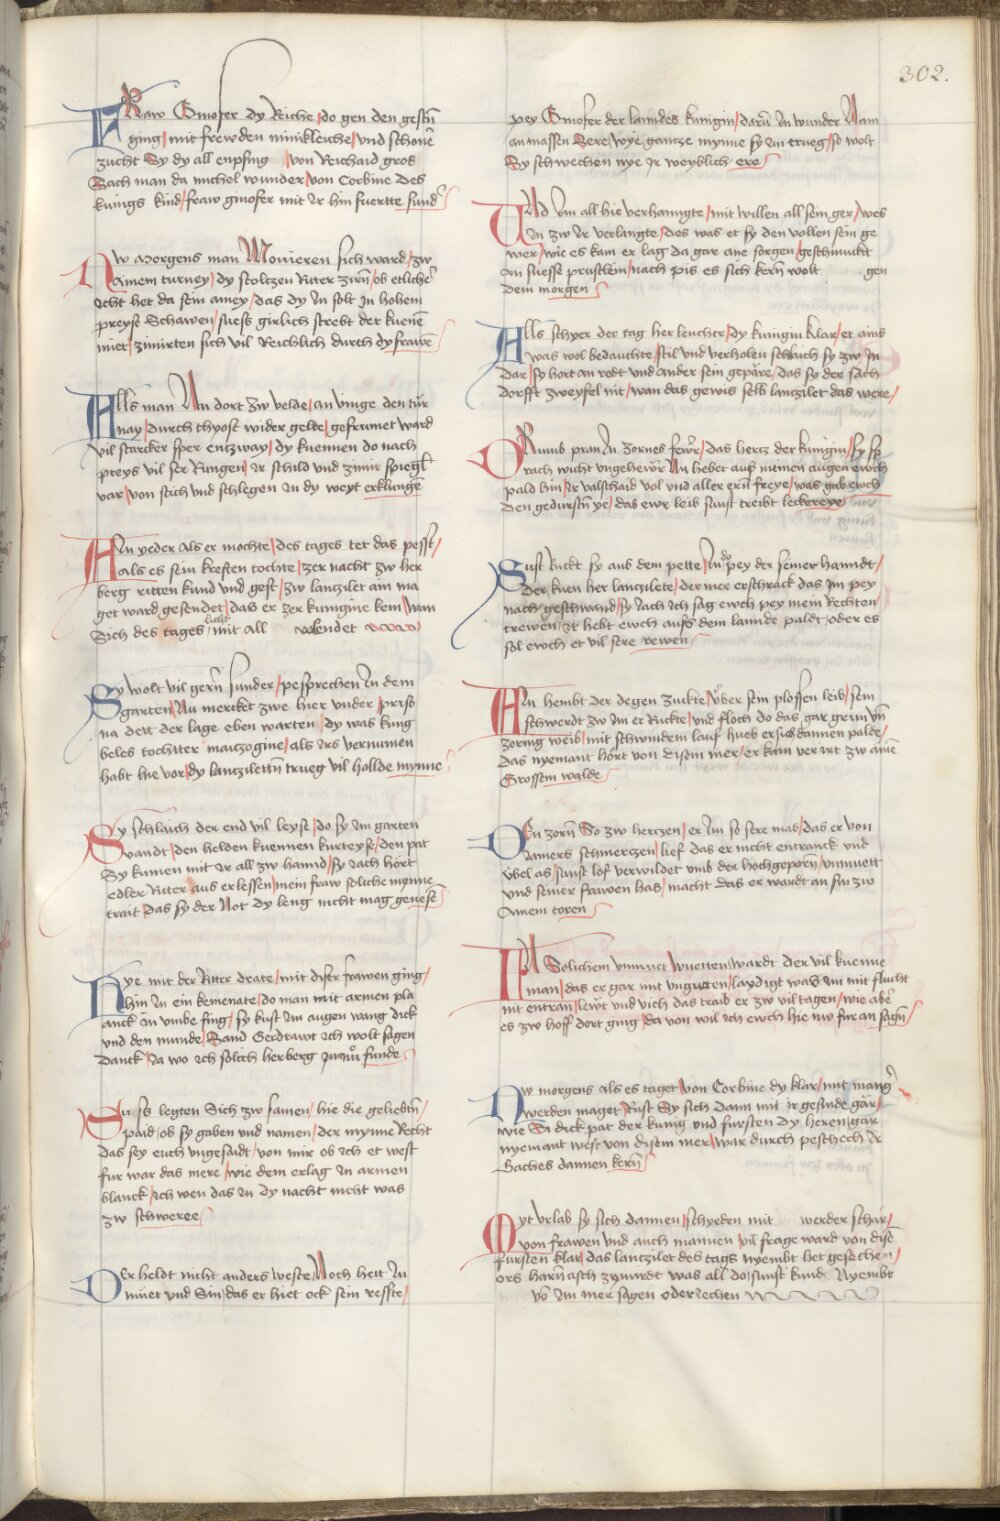 302.
FRaw Gmofer dy Riche / do gen den gestn
ging / mit frewden minikleiche / vnd schoner
zucht Sy dy all enpfing / von Reichaid gros
Sach man da michel wunder / von Corbine des
kunigs kind / fraw gmofer mit Ir hin fuertte sund
NW morgens man Moirieren sich ward / zw
Ainem turney / dy stoltzen Riter zirn / ob etliche
icht het da sein amey / das dy In solt In hohem
preyse Schawen / suess girlich strebt der kuene
muet / zimirten sich vil Reichlich durch dy frawe
Alls man In dort zw velde / an vinge den tur
nay / durch thyost wider gelde / gefrumet ward
vil starcker sper entzway / dy kuennen do nach
preys vil ser Rungen / Ir schild vnd zimir spiegl
var / von stich vnd schlegen In dy weyt erklungen
AIn yeder als er mochte / des tages tet das pesst /
als es sein kresten tochte / zer nacht zw her
berg ritten kund vnd gest / zw lanzilet ain ma
get ward gesendet / das er zer kunigine kem / wan
Sich des tages / licht mit all wendet
Sy wolt vil gern sunder / pesprechen In dem
garten / Nu mercket zwe hier vnder / priso
na dett der lage eben warten / dy was kung
beles tochtter maiczogine / als irs vernumen
habt hie vor / dy lanziletn trueg vil hollde mynne
Sy schlaich der end vil leyse / do sy im garten
vandt / den helden kuennen kurteyse / den pat
Sy kumen mit ir all zw hannd / sy rach hort
edler Riter aus erlessen / mein fraw soliche mynne
trait / das sy der Not dy leng nicht mag genese
Dye mit der Riter drate / mit diser frawen ging /
hin In ein kemenate / do man mit armen pla
anck an vmbe fing / sy kust im augen wang dick
vnd den munde / Sand Gerdrawt ich wolt sagen
Danck / Ia wo ich solich herberg funde
Suss legten Sich zw samen / hie die geliebtn /
paid / ob sy gaben vnd namen / der mynne Recht
das sey euch vngesaidt / von mir ob ich et west
fur war das mere / wie dem erlag In armen
blanck / ich wen das In dy nacht nicht was
zw schweree
Der heldt nicht anders weste / Noch hett In
muet vnd Sin / das er hiet ock sein vesste /
pey Gmofer der lanndes kunigin / daru In wunder Nam
an massen Sere / wye gantze mynne sy im trueg / so wolt
Sy schwechen nye Ir weyblich ere
VNd Im all hie verhanngte / mit willen all sein ger / wes
In zw Ir verlangte / des was et sy den vollen sein ge
wer / wie es kam er lag da gar ane sorgen / geschmuckt
An suesse prustlein / nach pis es sich kern wolt gen
dem morgen
Alls schyer der tag her leuchte / dy kunigin klar / et ains
was wol bedauchte / stil vnd verholen schlaich sy zw In
dar / sy hort an redt vnd ander sein gepare / das sy der sach
dorfft zweyfel nit / wan das gewis selb lanczilet das were /
DArumb pran In zornes fewr / das hertz der kunigin / sy sp
rach wicht vngehewr Nu hebet aus meinen augen ewch
pald hin / Ir valschaid vol vnd aller ern freye / was gab ewch
den gedurstn ye / das ewr leib sunst treibt leckereye
Sust Ruckt sy aus dem pette / In do pey der seiner hanndt /
der kuen her lanczilete / der mer erschrack das Im pey
nach geschwand / sy rach ich sag ewch pey mein Rechten
trewen / It hebt ewch auss dem lannde paldt / oder es
sol ewch et vil sere rewen
AIn hembt der degen zuckte / vber sein plossen leib / sein
schwerdt zw Im er Ruckte / vnd floch do das gar grim vn
zornig weib / mit schwindem lauf hueb er sich dannen palde /
das nyemant hort von disem mer / er kam ver irt zw aine
Grossem walde
DEn zorn So zw hertzen / er Im so sere mas / das er von
Iamers schmertzen / lief das er nicht entranck vnd
vbel as / sunst lof verwildet vmb der hochgeporn / vnmuett
vnd seiner frawen has / macht das er wardt an sin zw
Ainem toren
IN Solichem vnmuet wuetten / wardt der vil kuenne
man / das er gar mit vngutten / laydigt was Im mit flucht
nit entran / lewt vnd vich das traib er zw vil tagen / wie aber
es zw hoff dort ging / da von wil ich ewch hie nw fur an sagn
NW morgens als es taget / von Corbine dy klar / mit mang
werden maget / Rust Sy sich dann mit ir gesinde gar /
wie Si dick pat der kunig vnd fursten dy heren gar
nyemant west von disem mer / war durch peschech Ir
Gaches dannen kern
Myt vrlab sy sich dannen / schyeden mit werder schar /
von frawen vnd auch mannen / vil frage ward von dise
fursten klar / das lanczilet des tags nyembt het gesechen /
ors harnasch zymirdt was all do / sunst kund Nyembt
vo Im mer sagen oder iechen